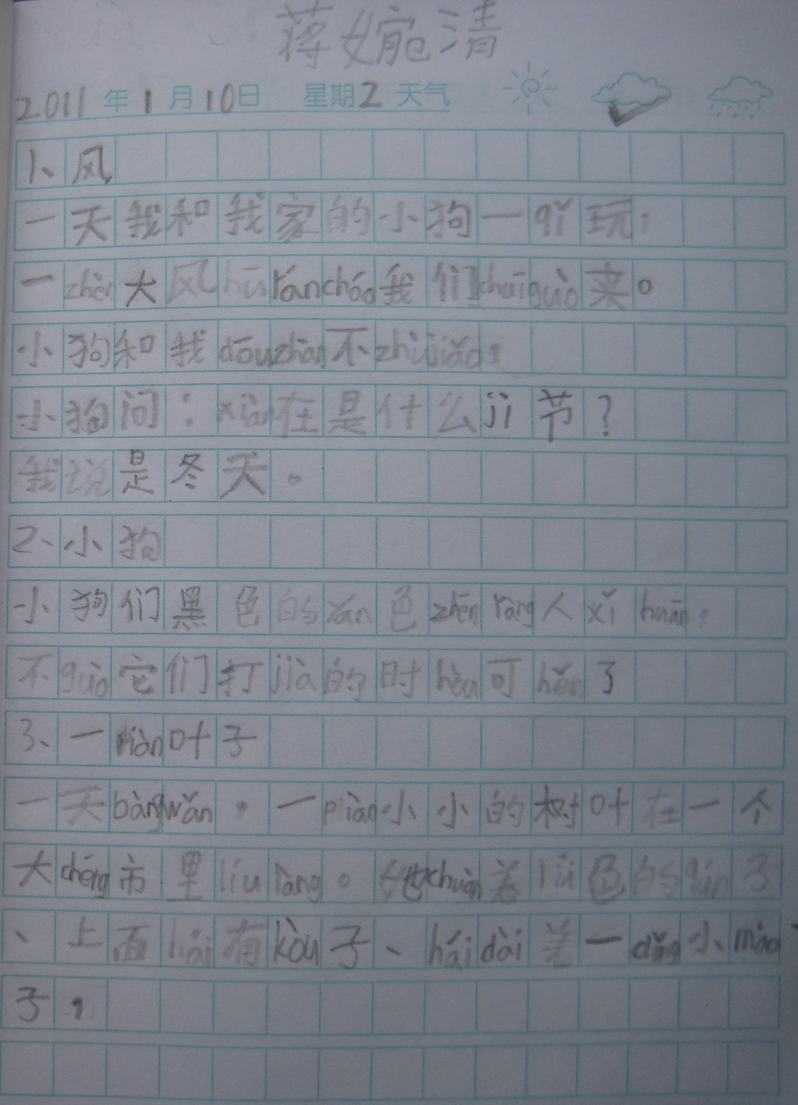 蒋婉清
2011年1月10日 星期2 天气
1、风
一天我和我家的小狗一qǐ玩，
一zhèn大风hūráncháo我们chuīguò来。
小狗和我dōuzhàn不zhùjiǎo，
小狗问：xiàn在是什么jì节？
我说是冬天。
2、小狗
小狗们黑色的yán色zhēnràng人xǐhuān，
不guò它们打jià的时hòu可hěn了
3、一piàn叶子
一天bàngwǎn，一piàn小小的树叶在一个
大chéng市里liúlàng。她chuān着lǜ色的qún子
、上面hái有kòu子、háidài着一dǐng小mào
子，